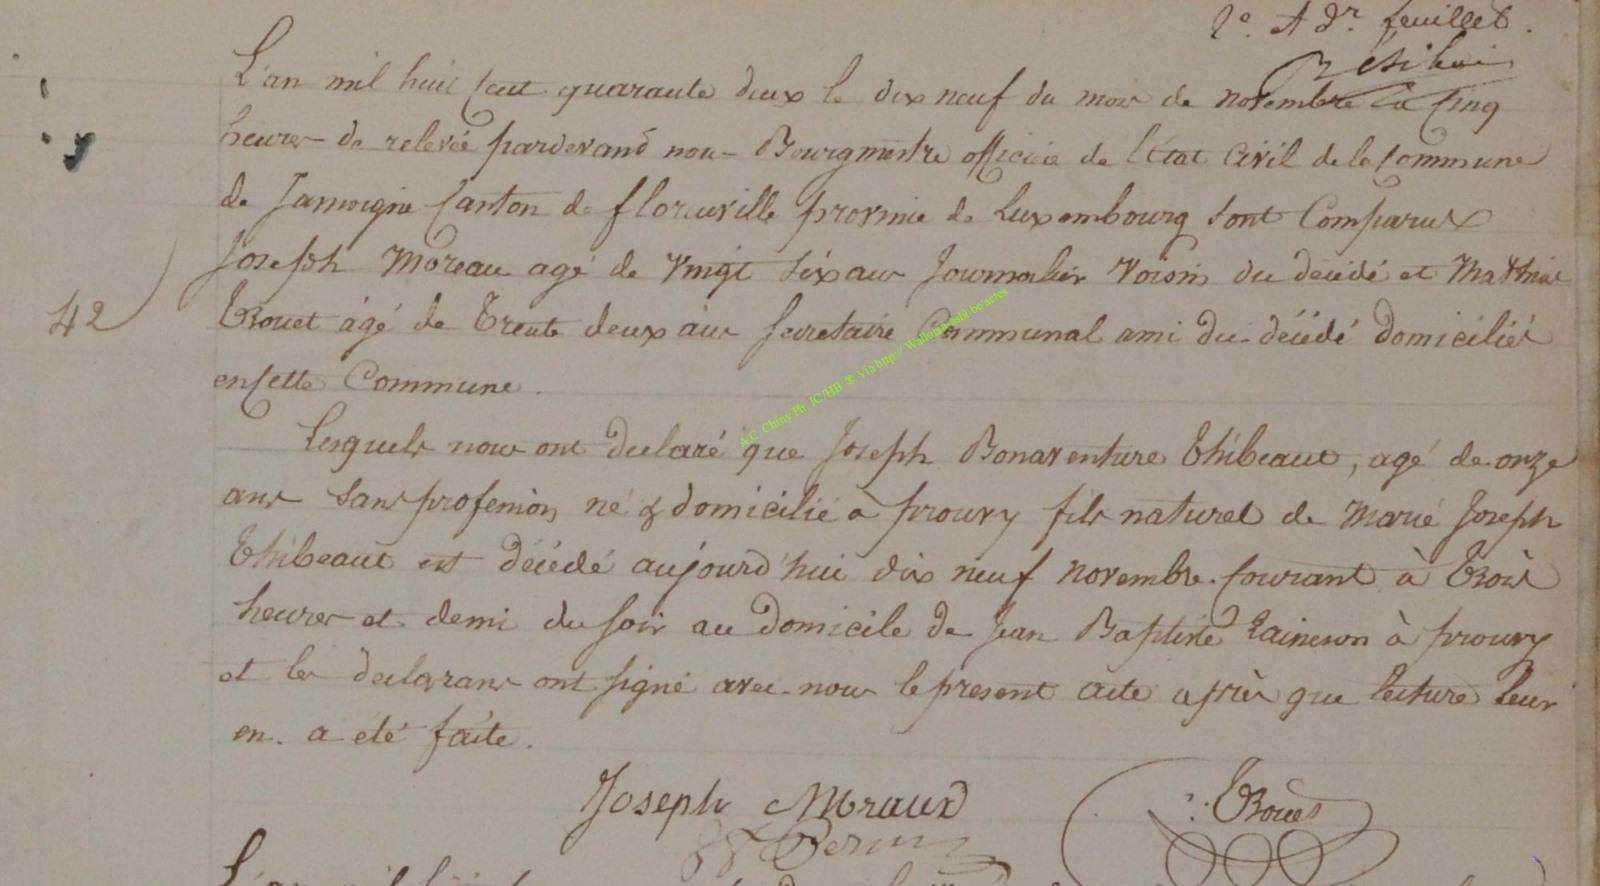 2e. et dr. feuillet.
L'an mil huit cent quarante deux le dix neuf du mois de novembre à cinq
heures de relevée pardevand nous Bourgmestre officier de l'état civil de la commune
de Jamoigne canton de florenville province de Luxembourg sont comparus
Joseph Moreau agé de vingt six ans journalier voisin du décédé et Mathias
42
Trouet âgé de trente deux ans secretaire communal ami du décédé domiciliés
en cette commune.
A.C. Chiny Ph. JC/HB & via http://Wallonica
Lesquels nous ont declaré que Joseph Bonaventure Thibeaut, agé de onze
ans sans profession né & domicilié à prouvy fils naturel de Marie Joseph
Thibeaut est décédé aujourd'hui dix neuf novembre courant à trois
heures et demi du soir au domicile de Jean Baptiste à prouvy
et les declarans ont signé avec nous le present acte après que lecture leur
en a été faite.
Joseph Moraux Trouet